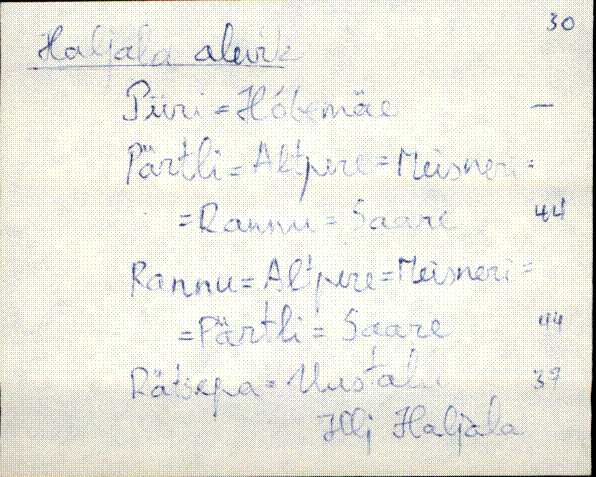 30
Haljala alevik
Piiri = Hõbemäe —
Pärtli = Altpere = Meisneri =
= Rannu = Saare 44
Rannu = Altpere = Meisneri =
= Pärtli = Saare 44
Rätsepa = Uustalu 39
Haljala